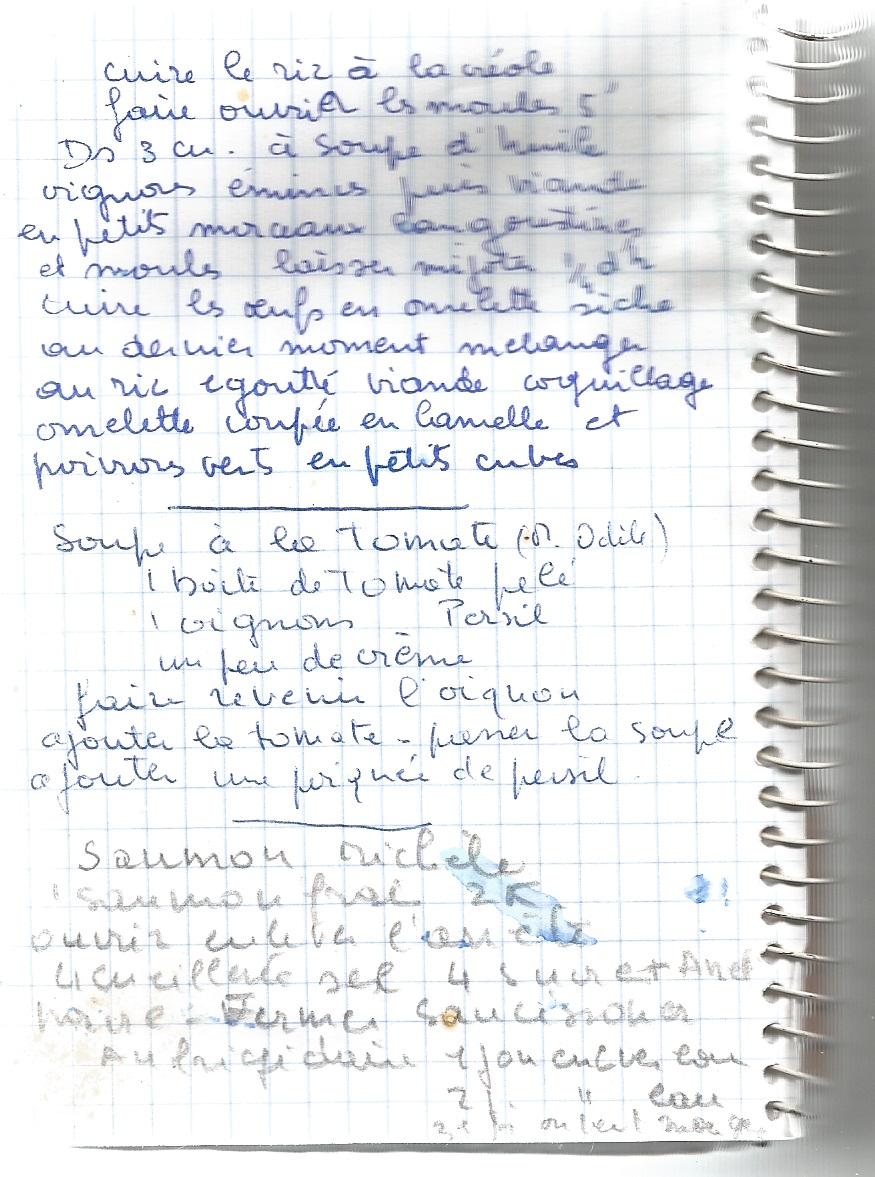 cuire le riz à la créole
faire ouvrir les moules 5"
Ds 3 cu. à soupe d'huile
oignons émincés puis viande
en petits morceaux langoustines
et moules laisser mijoter 1/4 d'h
cuire les œufs en omelette sèche
au dernier moment melanger
au riz egoutté viande coquillage
omelette coupée en lamelle et
poivrons verts en petits cubes
Soupe à la Tomate (M. Odile)
1 boite de Tomate pelé
1 oignons Persil
un peu de crème
faire revenir l'oignon
ajouter la tomate - passer la soupe
ajouter une poignée de persil.
Saumon Michèle
1 saumon frai 2K
ouvrir enlever l'arrête
4 cuillerée sel 4 sucre + Anet
Fermer Saucissonner
Au frigidaire 1 jour enlever eau
2 j " eau
3e j on peut manger